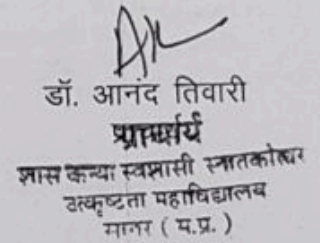 डॉ. आनंद तिवारी
प्राचार्य
शास कन्या स्वशासी स्नातकोत्तर
उत्कृष्टता महाविद्यालय
सागर ( म.प्र. )